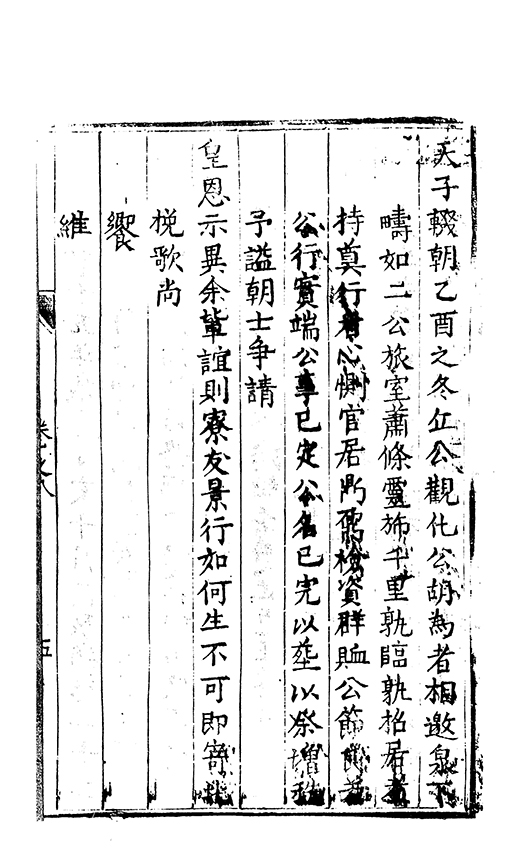 天子輟朝乙酉之冬丘公觀化公胡為者相邀泉下
疇如二公旅室蕭條靈斾千里孰臨孰招居者
持奠行者心惻官居門資群賻公節
公行實端公尊已定公名已完以塟以祭增秩
予謚朝士爭請
皇恩示異余輩誼則寮友景行如何生不可即寄哉
挽歌尚
饗
維
卷之八
五